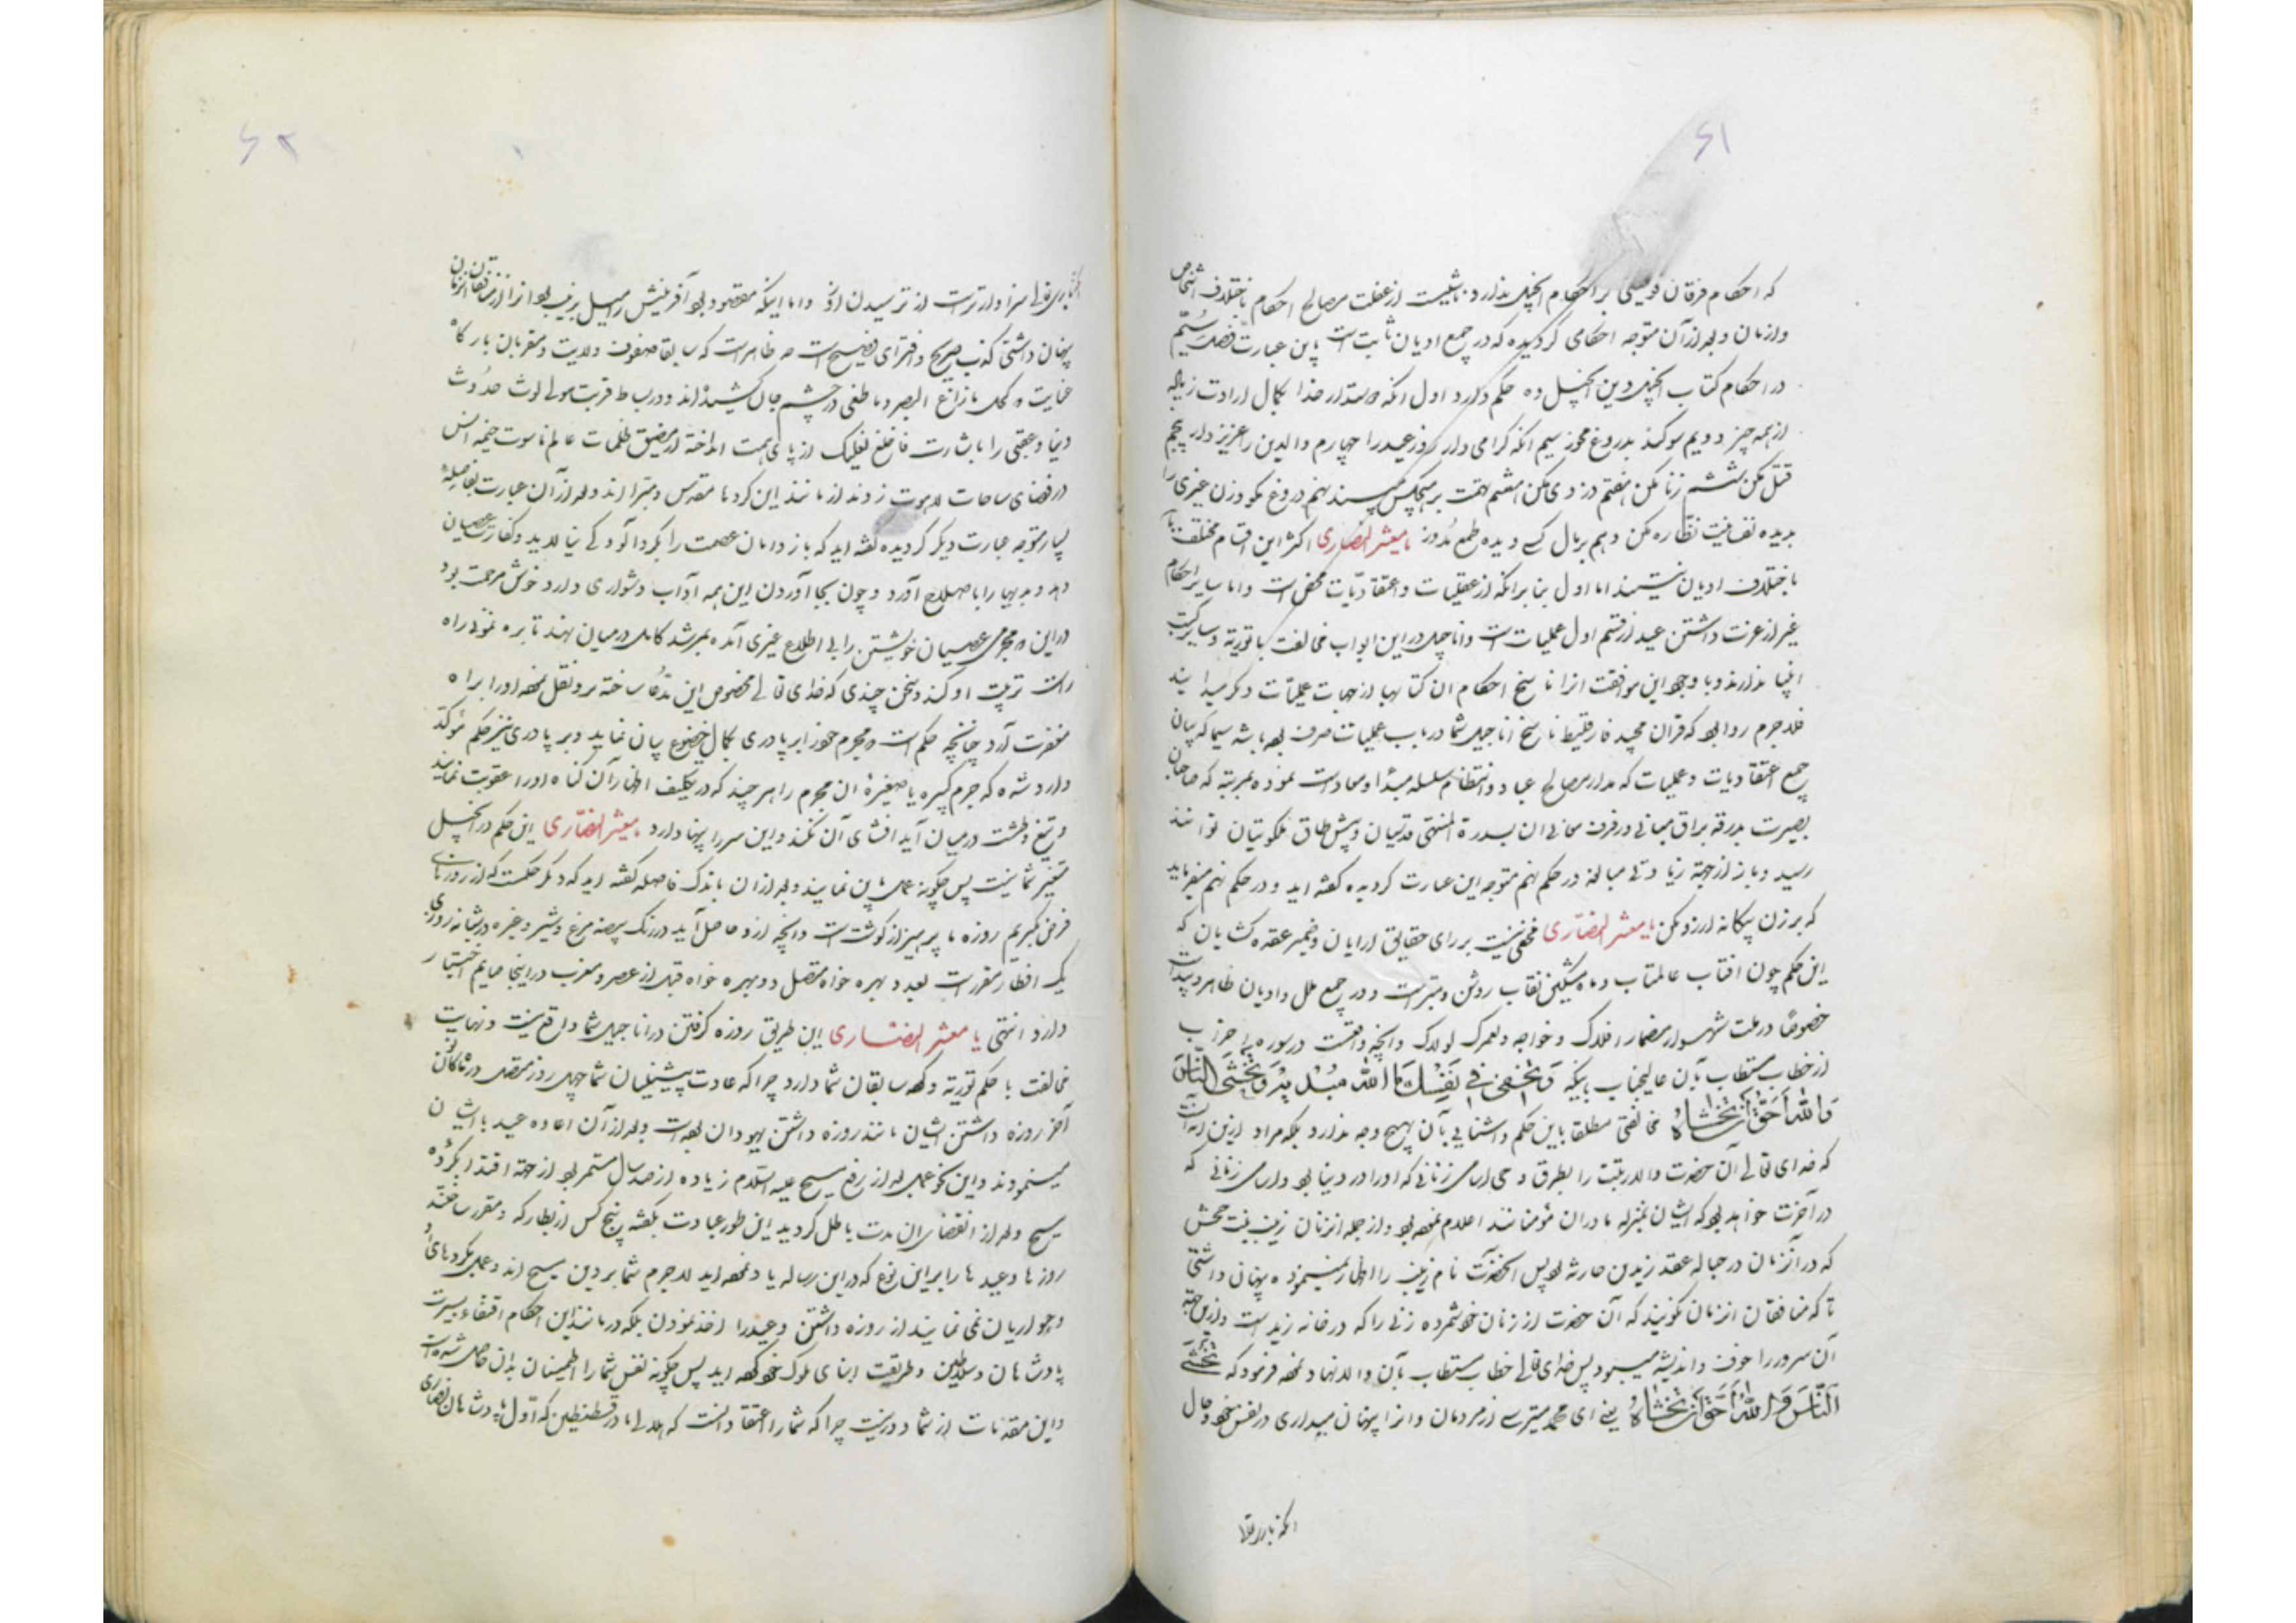 ۶۱
که احکام فرقان فوقیتی بر احکام انجیل ندارد ناشیست از غفلت مصالح احکام باختلاف اشخاص
و ازمان و بعد از آن متوجه احکامی گردیده که در جمیع ادیان ثابت است باین عبارت فصل ششم
در احکام کتاب انجیل و دین انجیل ده حکم دارد اول انکه دوستدار خدا بکمال ارادت زیاله
از همه چیز دویم سوکند بدروغ مخور سیم انکه گرامی دار روز عید را چهارم والدین را عزیز دار پنجم
قتل مکن ششم زنا مکن هفتم دزدی مکن هشتم تهمت بر هیچکس مبند نهم دروغ مگو و زن غیری را
بدیده نفسانیت نظاره مکن دهم بمال کسی دیده طمع مدوز یا معشر النصاری اکثر این اقسام مختلف
باختلاف ادیان نیستند اما اول بنا برانکه از عقلیات و اعتقادیات محض است و اما سایر احکام
غیر از عزت داشتن عید از قسم اول عملیات است و اناجیل در این ابواب مخالفت با توریة و سایر کتب
انبیا ندارند و با وجود این موافقت انرا ناسخ احکام ان کتابها از جهات عملیات دیگر میدانند
فلاجرم روا بود که قرآن مجید فارقلیط ناسخ اناجیل شما در باب عملیات صرف بوده باشد سیما که بیان
جمیع اعتقادیات و عملیات که مدار مصالح عباد و انتظام سلسله مبدا و معاد است نموده بمرتبه که صاحبان
بصیرت بدرقه براق مبانی و رفرف معانی ان بسدرة المنتهی قدسیان و پیش طاق ملکوتیان توانند
رسید و باز از جهة زیادتی مبالغه در حکم نهم متوجه این عبارت گردیده گفته اید و در حکم نهم میفرماید
که بر زن بیگانه ارزو مکن یا معشر النصاری مخفی نیست بر رای حقایق ارایان و ضمیر عقده گشایان که
این حکم چون افتاب عالمتاب و ماه مشکین نقاب روشن و مبرهن است و در جمیع ملل و ادیان ظاهر و پیداست
خصوصا در ملت شهسوار مضمار افلاک و خواجه و لعمرک لولاک و انچه واقعست در سوره احزاب
از خطاب مستطاب بآن عالیجناب باینکه وَتُخْفِی فِی نَفْسِكَ مَا اللّٰهُ مُبْدِیهِ وَتَخْشَی النَّاسَ
وَاللّٰهُ اَحَقُّ اَنْ تَخْشَاهُ مخالفتی مطلقا باین حکم و اشنایی بآن بهیچ وجه ندارد بلکه مراد ازین انست
که خدای تعالی آن حضرت والا رتبت را بطریق وحی اسامی زنانی که اورا در دنیا بود و اسامی زنانی که
در آخرت خواهد بود که ایشان بمنزله مادران مؤمنانند اعلام نموده بود و از جمله انزنان زینب بنت جحش
که در آنزمان در حباله عقد زید بن حارثه بود پس آنحضرت نام زینب را اظهار نمینموده پنهان داشتی
تا که منافقان انزمان نگویند که آن حضرت از زنان خود شمرده زنی را که در خانه زید است و ازین جهة
آن سرور را خوف و اندیشه میبود پس خدای تعالی خطاب مستطاب بآن والا نهاد نموده فرمود که تَخْشَی
النَّاسَ وَاللّٰهُ اَحَقُّ اَنْ تَخْشَاهُ یعنی ای محمد میترسی از مردمان و انرا پنهان میداری در نفس خود و حال
انکه باریتعالی
۶۲
باریتعالی سزاوارتر است از ترسیدن ازو و اما اینکه مقصود بود آفرینش را میل بزینب بود انرا از منافقان انزمان
پنهان داشتی کذب صریح و افترای فضیح است چه ظاهر است که سابقا صفوف ولایت و مقربان بارگاه
عنایت که کحل مازاغ البصر و ما طغی در چشم جان کشیده اند و در بساط قربت مولی لوث حدوث
دنیا و عقبی را باشارت فاخلع نعلیک از پای همت انداخته از مضیق ظلمات عالم ناسوت خیمه انس
در فضای ساحات لاهوت زده اند از مانند این کردها مقدس و مبرا اند و بعد از آن عبارت بفاصله
بسیار متوجه عبارت دیگر گردیده گفته اید که باز دامان عصمت را بگرد آلودگی نیالاید و کفارت عصیان
دهد و بدیها را باصلاح آورد و چون بجا آوردن این همه آداب دشواری دارد خوش مرحمت بود
در این که مجرمی عصیان خویشتن را بی اطلاع غیری آمده بمرشد کامل درمیان نهند تا بره نمونی راه
راست تربیت او کند و سخن چندی که خدای تعالی مخصوص این مدعا ساخته برو نقل نموده اورا براه
مغفرت آرد چنانچه حکم است که مجرم خود را بر پادری بکمال خضوع بیان نماید و بر پادری نیز حکم مؤکد
وارد شده که جرم کبیره یا صغیرۀ ان مجرم را هر چند که در تکلیف اظهار آن گناه اورا عقوبت نمایند
و تیغ و طشت درمیان آید افشای آن نکند و این سر را پنهان دارد یا معشر النصاری این حکم در انجیل
متغیر شما نیست پس چگونه عمل باین نمایند و بعد از ان باندک فاصله گفته اید که دیگر حکمست که از روزهای
فرض بگیریم روزه با پرهیز از گوشت است و انچه ازو حاصل آید در رنگ بیضه مرغ و شیر و غیره در شبانه روزی
یک افطار مقرر است بعد دو بهره خواه متصل دو بهره خواه قبل از عصر و مغرب در اینجا صایم اختیار
دارد انتهی یا معشر النصاری این طریق روزه گرفتن در اناجیل شما واقع نیست و نهایت
مخالفت با حکم توریة که سابقان شما دارد چرا که عادت پیشینیان شما چهل روز متصل در ماه کانون
آخر روزه داشتن ایشان مانند روزه داشتن یهودان بوده است و بعد از آن اعاده عید با ایشان
مینمودند و این نحو عمل بعد از رفع مسیح علیه السلام زیاده از صد سال مستمر بود از جهة اقتدا بکرده
مسیح و بعد از انقضای ان مدت باطل گردید این طور عبادت بگفته پنج کس از بطارکه و مقرر ساختند
روزها و عیدها را بر این نوع که در این رساله یاد نموده اید لاجرم شما بر دین مسیح اند و عمل بکردهای او
و حواریان نمی نمایند از روزه داشتن و عید را اخذ نمودن بلکه در مانند این احکام اقتفاء بسیرت
پادشاهان و سلاطین و طریقت ابنای ملوک خود کرده اید پس چگونه نفس شما را اطمینان بدان حاصل شده است
و این مقدمات از شما دور نیست چرا که شما را اعتقاد انست که هلانا مادر قسطنطین که اول پادشاهان نصاری